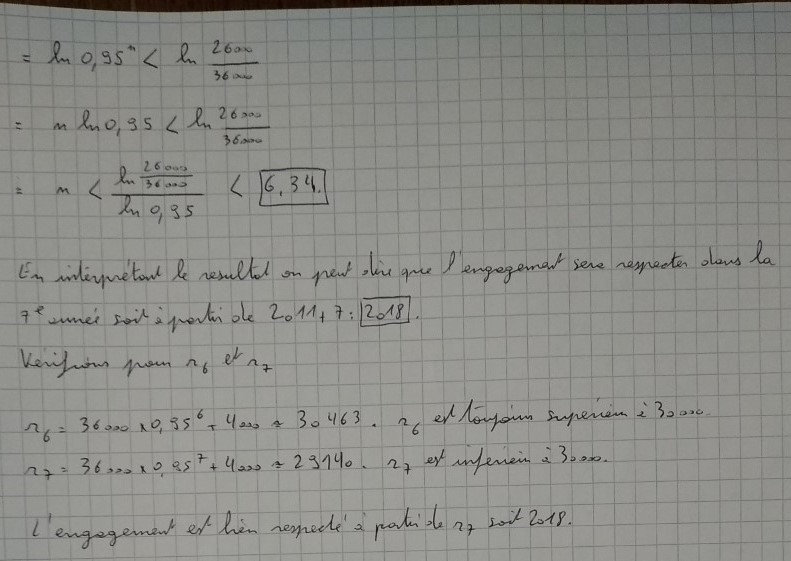 = ln 0,95^n < ln 26000/36000
= n ln 0,95 < ln 26000/36000
= n < (ln 26000/36000)/(ln 0,95) < 6,34.
En interprétant le resultat on peut dire que l'engagement sera respecter dans la
7e année soit à partir de 2011+7 = 2018.
Verifions pour r6 et r7
r6 = 36000 x 0,95^6 + 4000 ≈ 30463. r6 est toujours superieur à 30000.
r7 = 36000 x 0,95^7 + 4000 ≈ 29140. r7 est inferieur à 30000.
L'engagement est bien respecté à partir de r7 soit 2018.